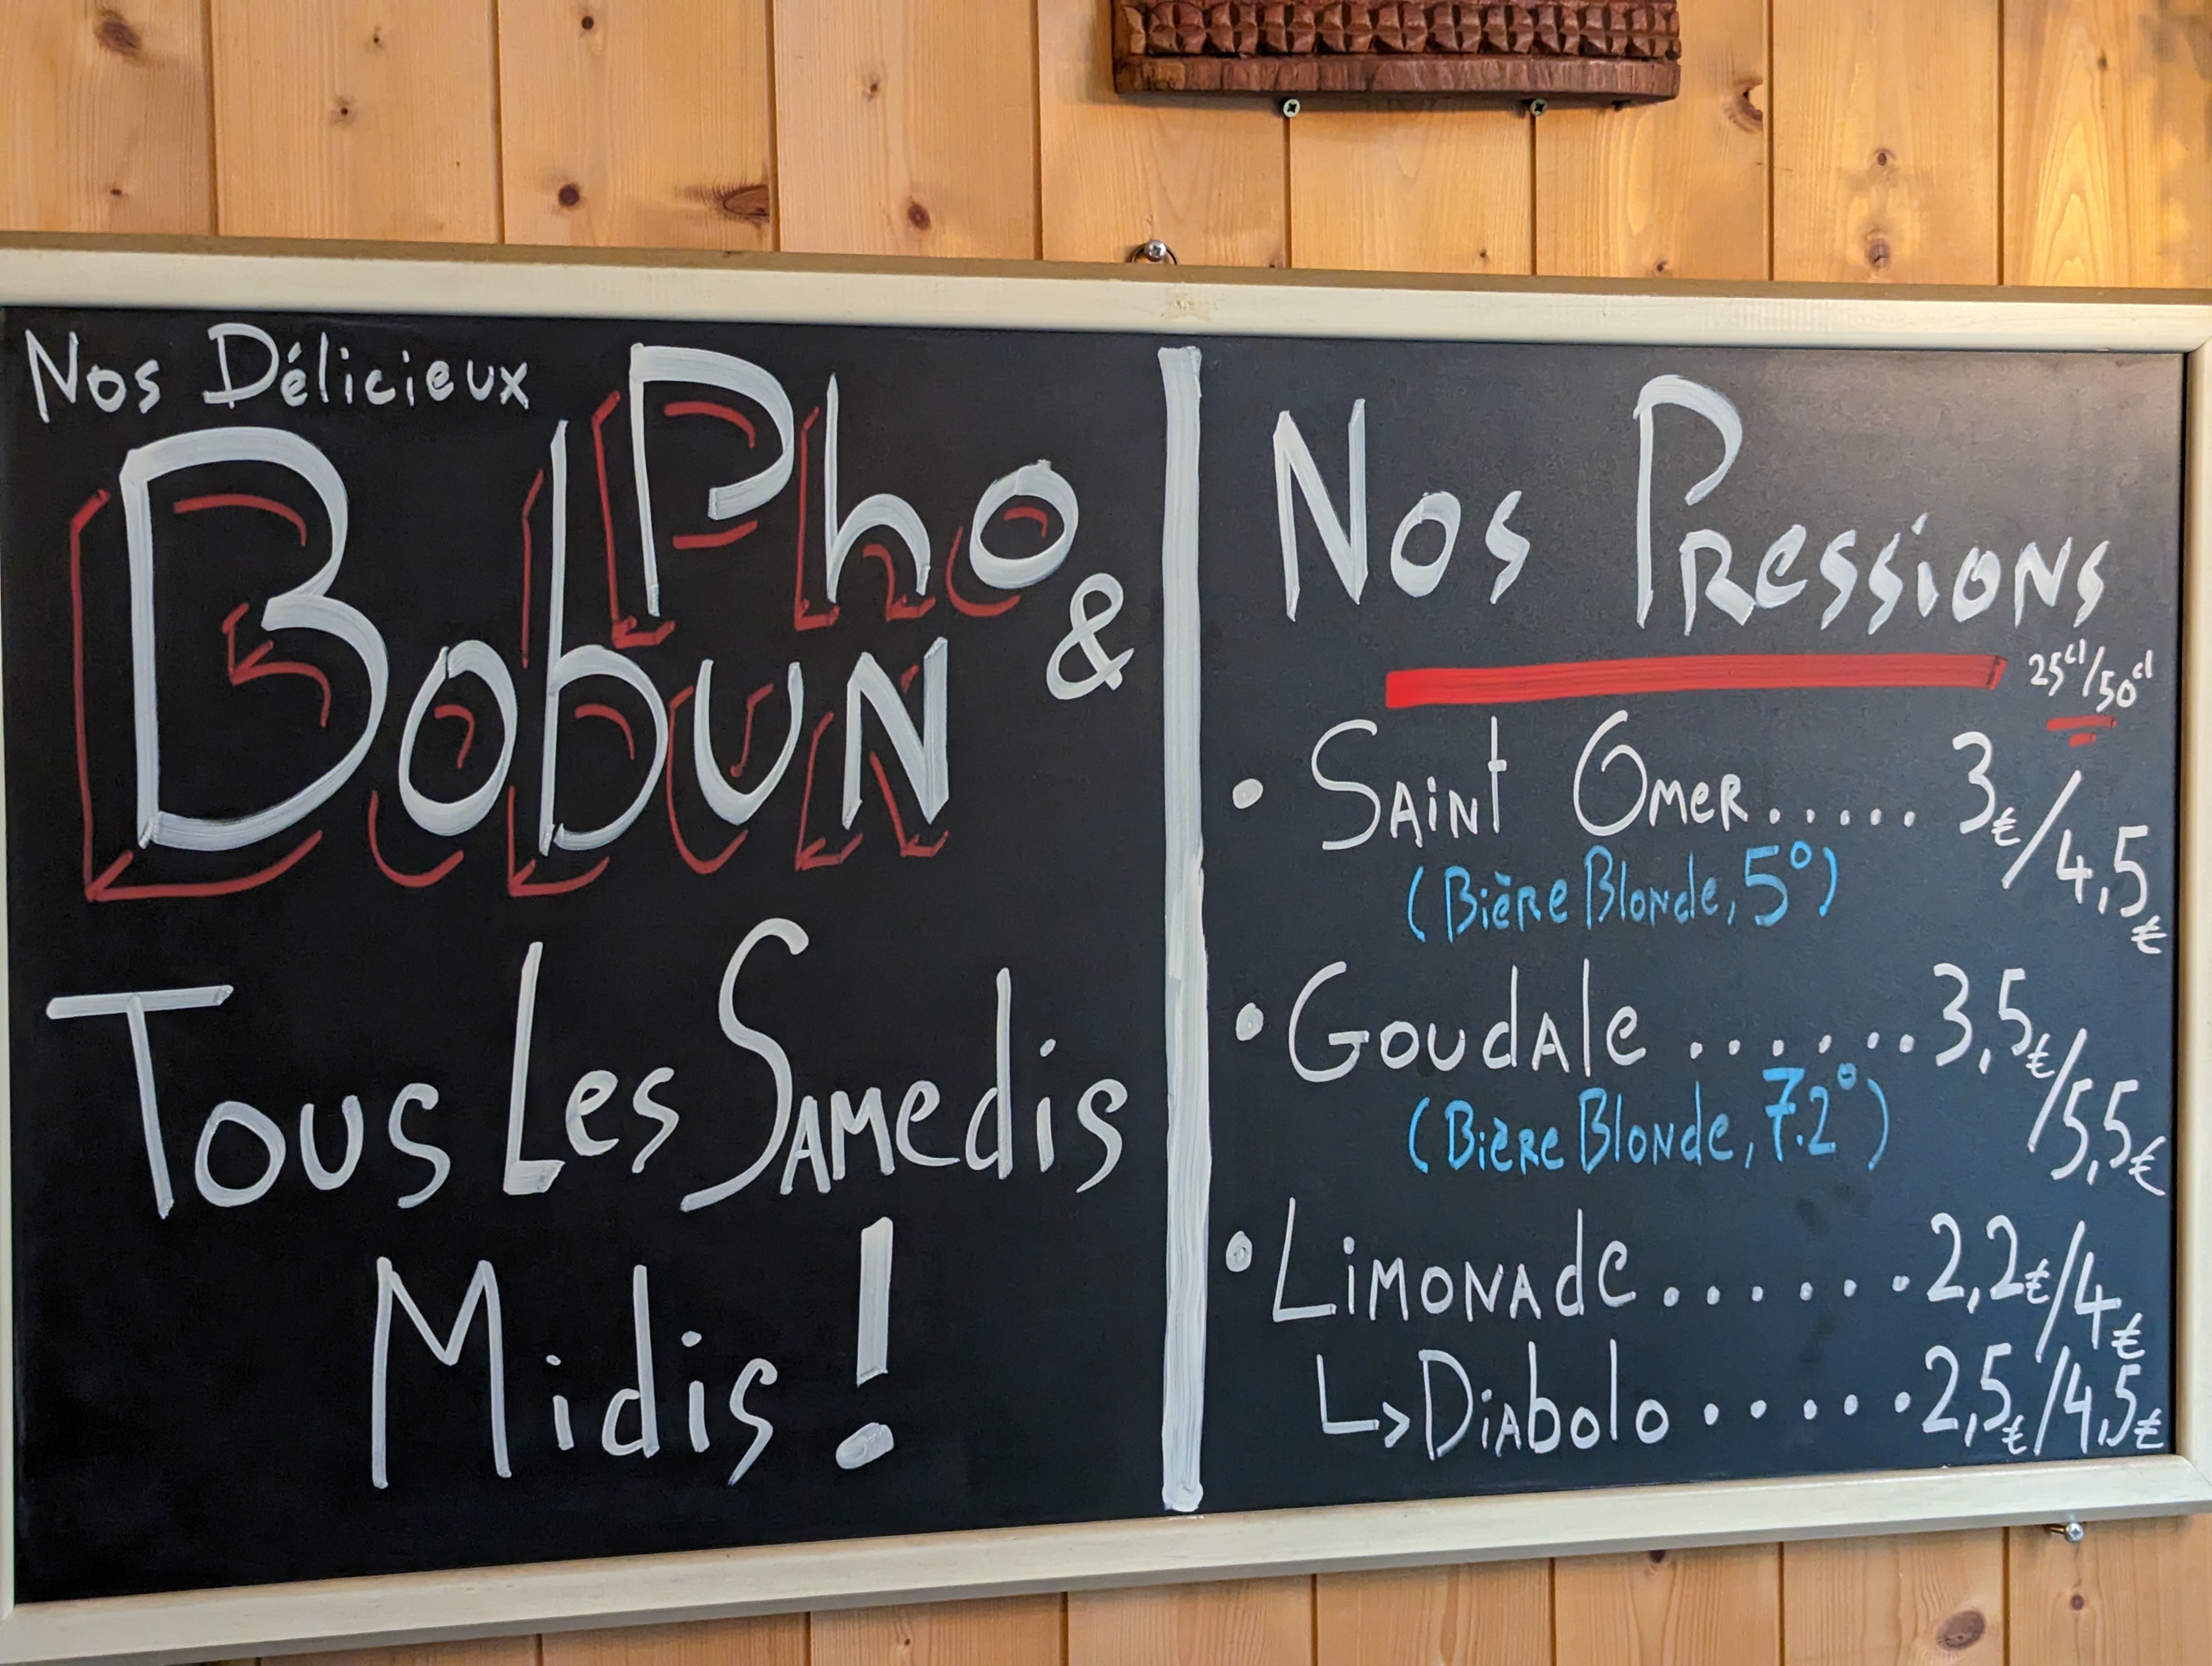 Nos Délicieux
Pho &
Bobun
Tous Les Samedis
Midis !
Nos Pressions
25cl/50cl
• Saint Omer..... 3€/4,5€
(Bière Blonde, 5°)
• Goudale ...... 3,5€/5,5€
(Bière Blonde, 7.2°)
• Limonade...... 2,2€/4€
↳ Diabolo ..... 2,5€/4,5€